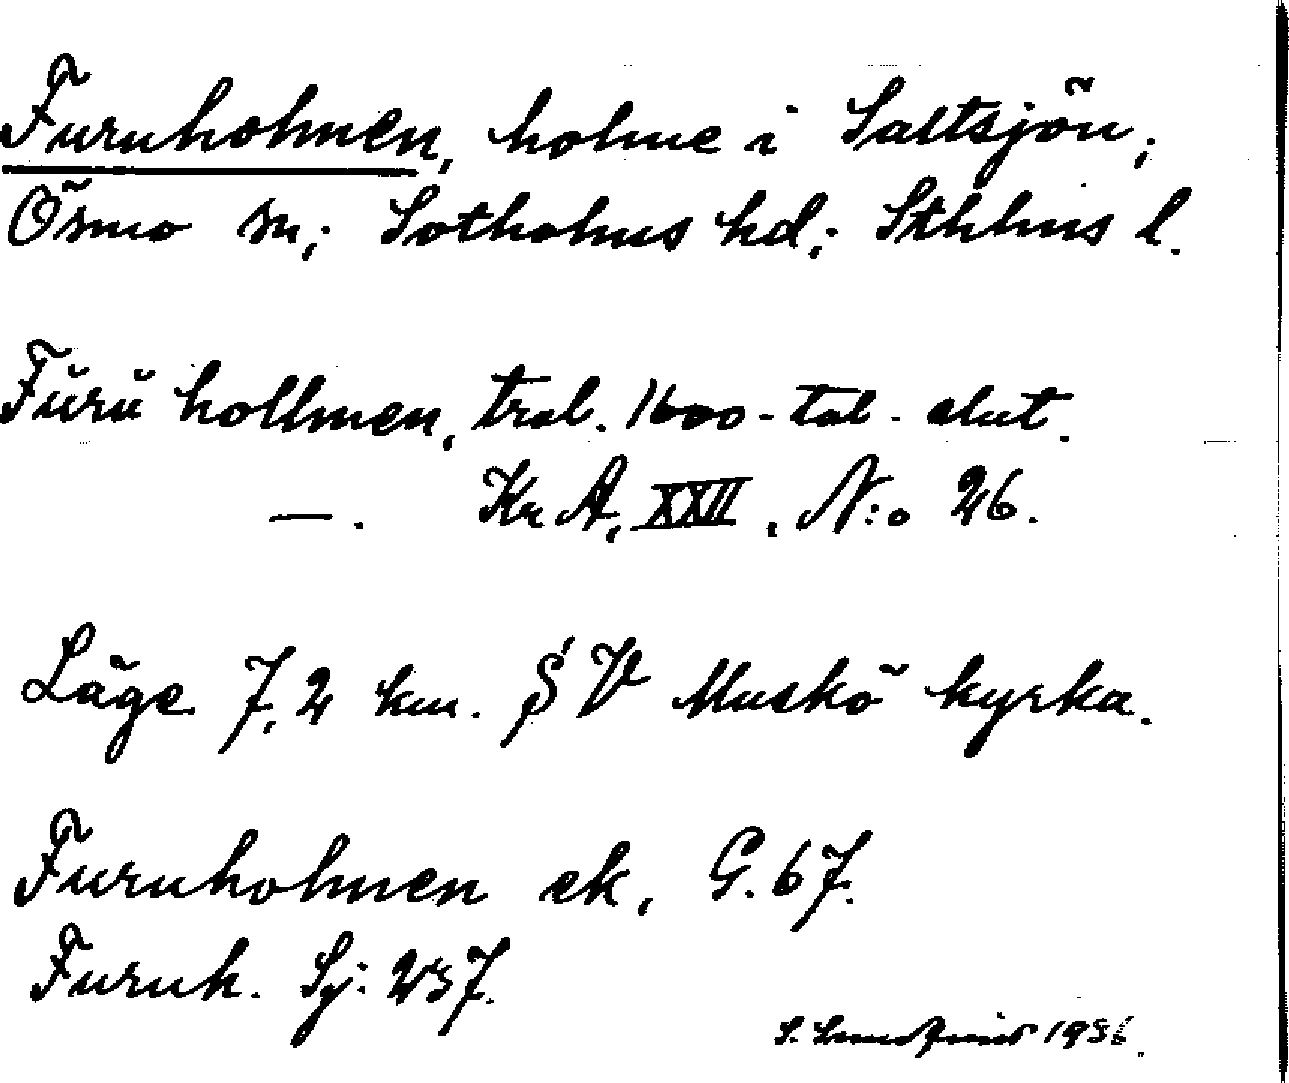 Furuholmen, holme i Saltsjön;
Ösmo sn; Sotholms hd; Sthlms l.
Fŭrŭ hollmen, trol. 1600-tal-slut.
—. KrA, XXII, N:o 26.
Läge 7,2 km. SV Muskö kyrka.
Furuholmen ek, G. 67.
Furuh. Sj: 237.
S. 1936.